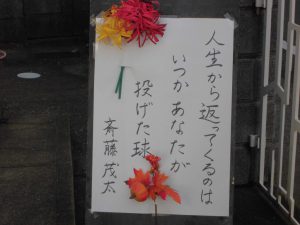 人生から返ってくるのは
いつか あなたが
投げた球
斎藤茂太